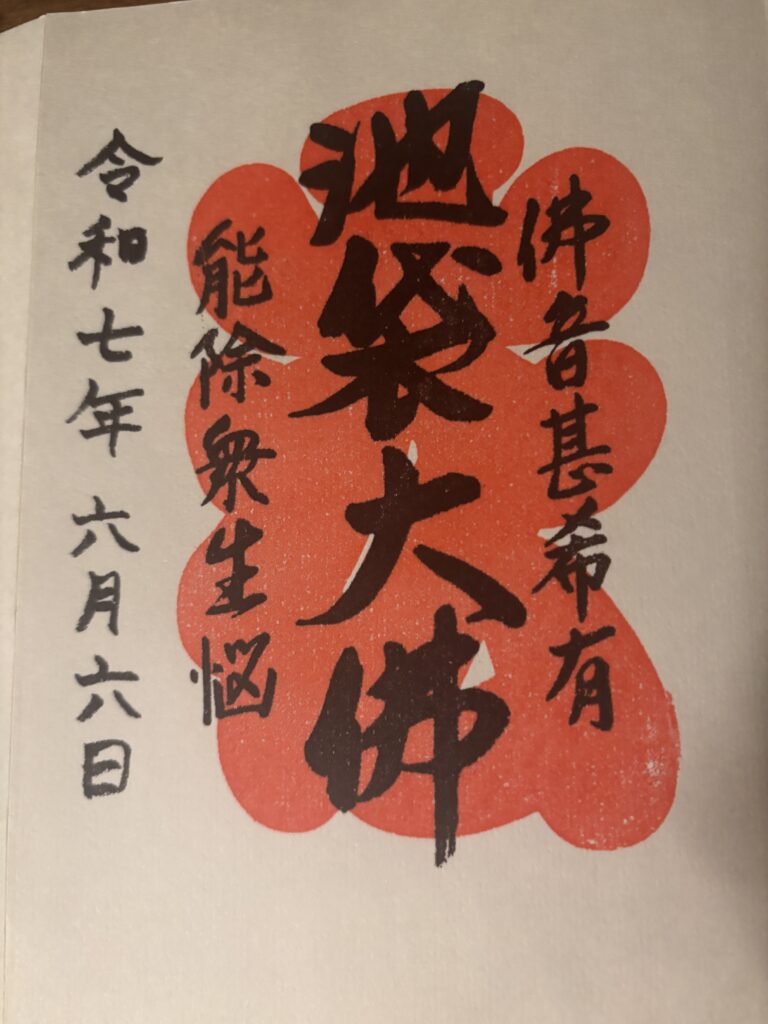 佛音甚希有
池袋大佛
能除衆生悩
令和七年 六月六日